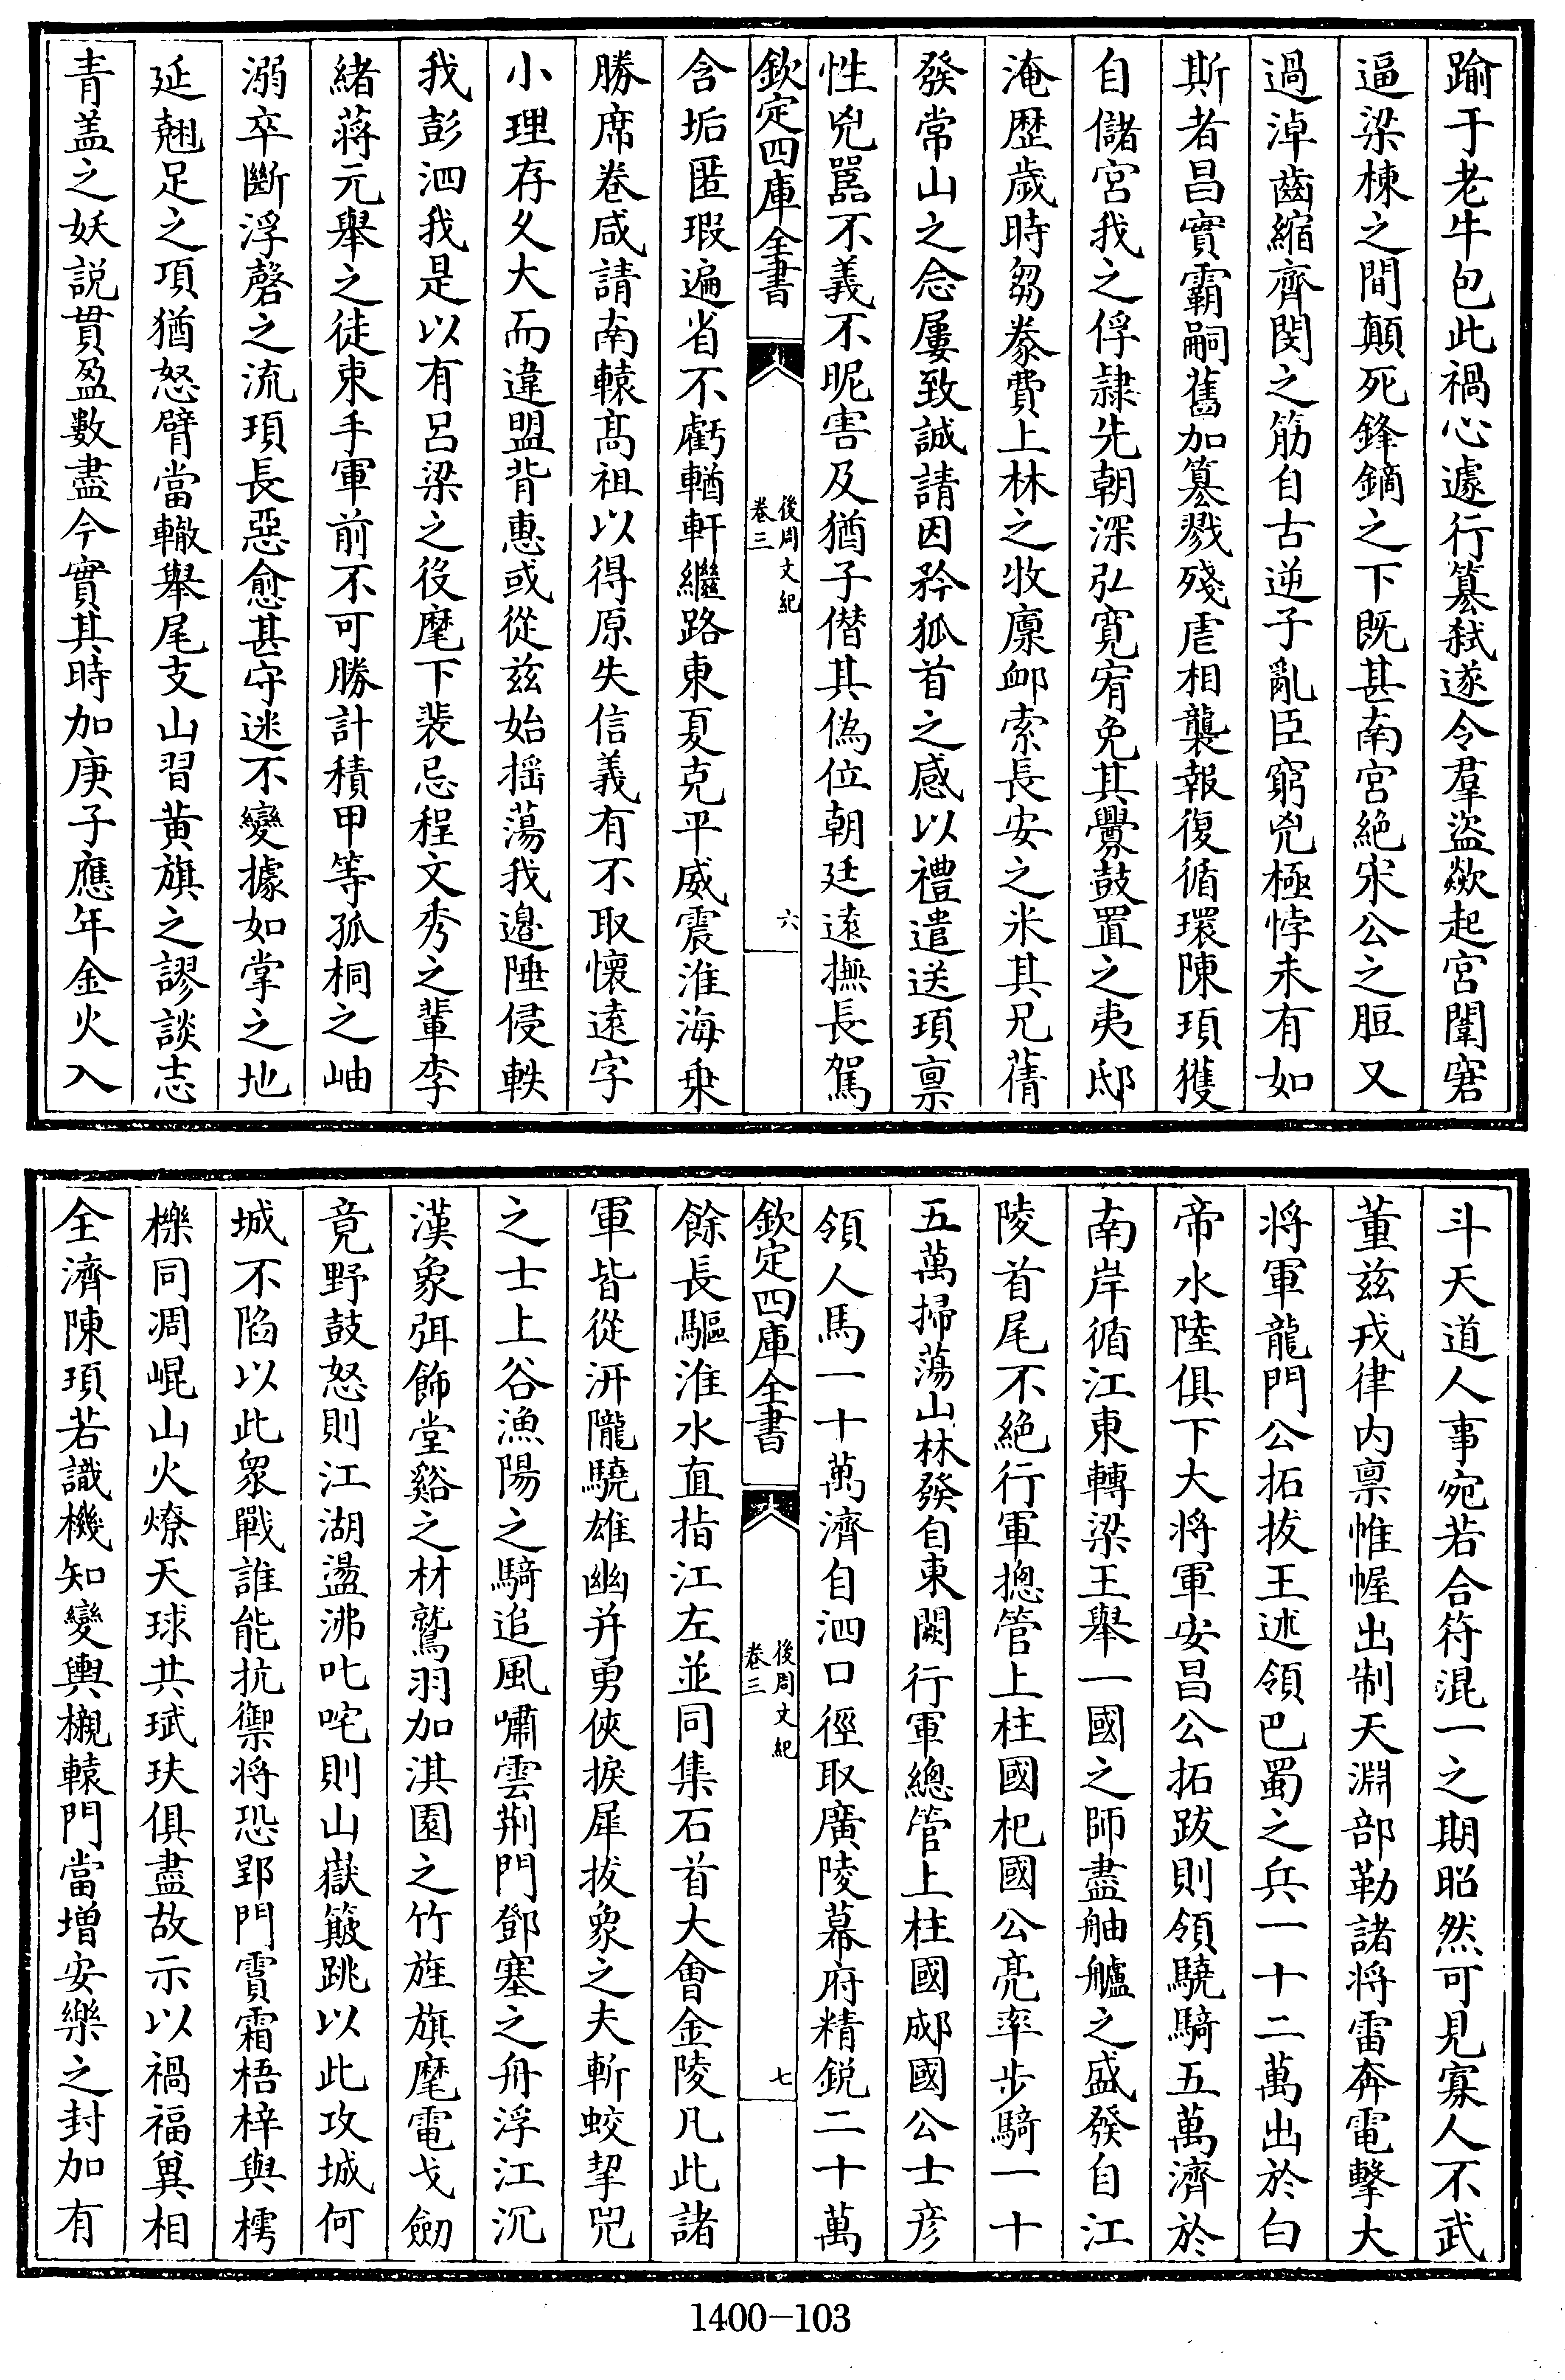 踰于老牛包此禍心遽行簒弑遂令羣盜歘起宮闈窘
逼梁棟之間顛死鋒鏑之下既甚南宮絶宋公之脰又
過淖齒縮齊閔之筋自古逆子亂臣窮兇極悖未有如
斯者昌實霸嗣舊加簒戮殘虐相襲報復循環陳頊獲
自儲宮我之俘隷先朝深弘寛宥免其釁鼓置之夷邸
淹歴歲時芻豢費上林之牧廩卹索長安之米其兄蒨
發常山之念屢致誠請因矜狐首之感以禮遣送頊禀
性兇嚚不義不昵害及猶子僭其偽位朝廷逺撫長駕
欽定四庫全書
後周文紀
卷三
六
含垢匿瑕遍省不虧輶軒繼路東夏克平威震淮海乗
勝席卷咸請南轅髙祖以得原失信義有不取懷逺字
小理存夂大而違盟背惠或從兹始揺蕩我邉陲侵軼
我彭泗我是以有呂梁之役麾下裴忌程文秀之輩李
緒蔣元舉之徒束手軍前不可勝計積甲等孤桐之岫
溺卒斷浮磬之流頊長惡愈甚守迷不變據如掌之地
延翹足之項猶怒臂當轍舉尾支山習黄旗之謬談志
青盖之妖説貫盈數盡今實其時加庚子應年金火入
斗天道人事宛若合符混一之期昭然可見寡人不武
董兹戎律内禀帷幄出制天淵部勒諸將雷奔電擊大
將軍龍門公拓拔王述領巴蜀之兵一十二萬出於白
帝水陸俱下大將軍安昌公拓跋則領驍騎五萬濟於
南岸循江東轉梁王舉一國之師盡舳艫之盛發自江
陵首尾不絶行軍摠管上柱國杞國公亮率步騎一十
五萬掃蕩山林發自東闕行軍總管上柱國郕國公士彦
領人馬一十萬濟自泗口徑取廣陵幕府精鋭二十萬
欽定四庫全書
後周文紀
卷三
七
餘長驅淮水直指江左並同集石首大會金陵凡此諸
軍皆從汧隴驍雄幽并勇俠捩犀拔象之夫斬蛟挐兕
之士上谷漁陽之騎追風嘯雲荆門鄧塞之舟浮江沉
漢象弭飾堂谿之材鷲羽加淇園之竹旌旗麾電戈劒
竟野鼓怒則江湖盪沸叱咤則山嶽簸跳以此攻城何
城不陷以此衆戰誰能抗禦将恐郢門賈霜梧梓與樗
櫟同凋崐山火燎天球共珷玞俱盡故示以禍福冀相
全濟陳頊若識機知變輿櫬轅門當增安樂之封加有
1400-103